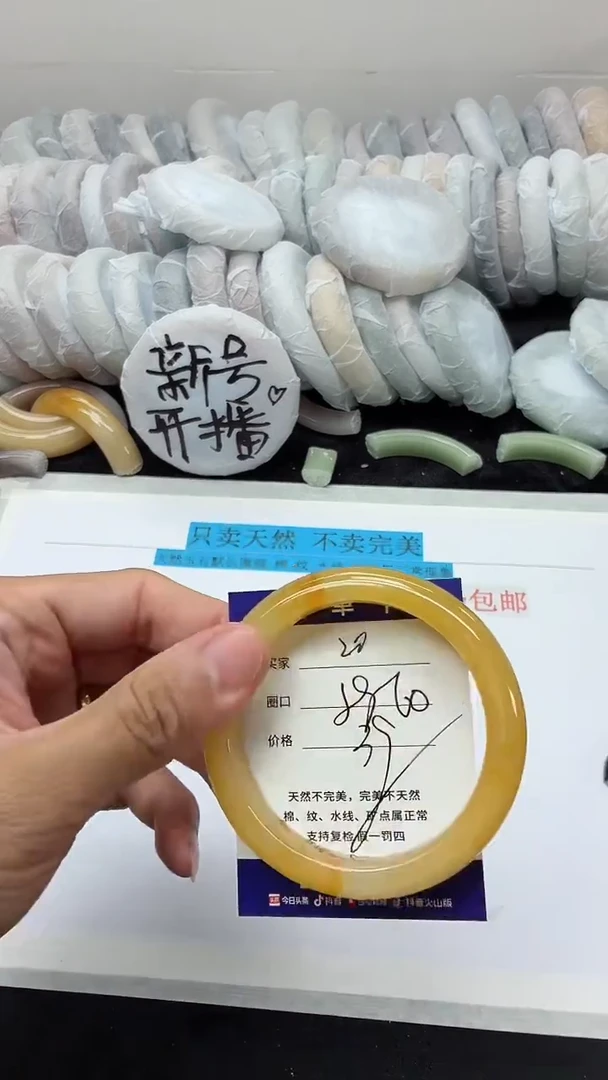 新号
开播♡
只卖天然 不卖完美
包邮
买家 20
圈口 59-60
价格 35
天然不完美，完美不天然
棉、纹、水线、矿点属正常
支持复检 假一罚四
今日头条 抖音 抖音火山版